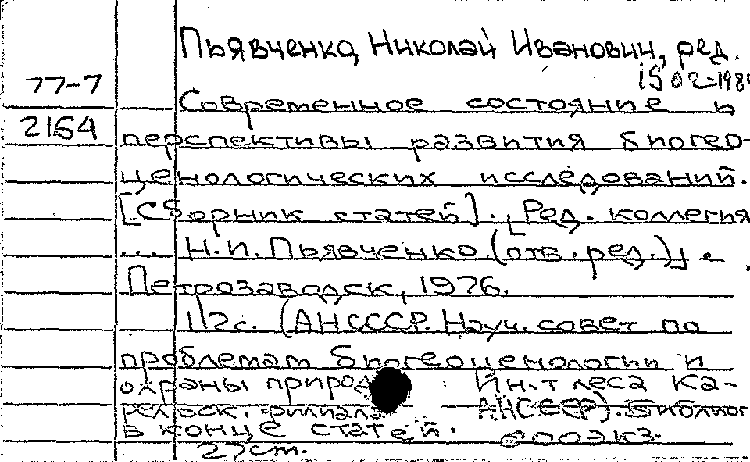 Пьявченко, Николай Иванович, ред.
77-7
Современное состояние и
2154
перспективы развития биогео-
ценологических исследований.
[Сборник статей]. [Ред. коллегия
... Н.И. Пьявченко (отв. ред.)].
Петрозаводск, 1976.
112с. (АН СССР. Науч. совет по
проблемам биогеоценологии и
охраны Ин-т леса Ка-
рельск. филиала АН СССР). Библиогр.
в конце статей.